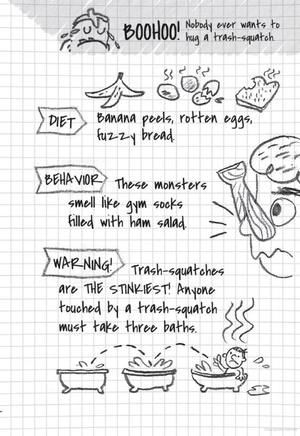 BOOHOO! Nobody ever wants to
hug a trash-squatch.
DIET
Banana peels, rotten eggs,
fuzzy bread.
BEHAVIOR
These monsters
smell like gym socks
filled with ham salad.
WARNING!
Trash-squatches
are THE STINKIEST! Anyone
touched by a trash-squatch
must take three baths.